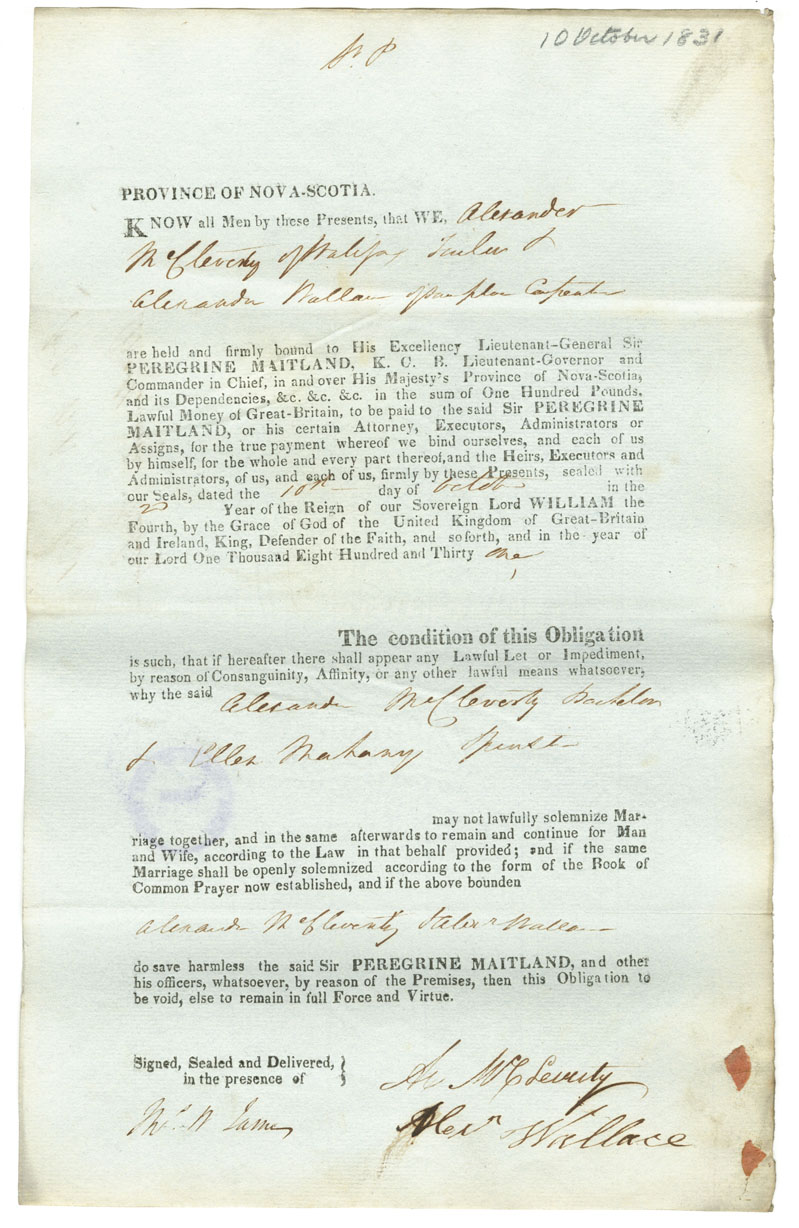 10 October 1831
PROVINCE OF NOVA-SCOTIA.
KNOW all Men by these Presents, that WE, Alexander
McCleverty of Halifax &
Alexander Wallace of Carpenter
are held and firmly bound to His Excellency Lieutenant-General Sir
PEREGRINE MAITLAND, K. C. B. Lieutenant-Governor and
Commander in Chief, in and over His Majesty's Province of Nova-Scotia,
and its Dependencies, &c. &c. &c. in the sum of One Hundred Pounds,
Lawful Money of Great-Britain, to be paid to the said Sir PEREGRINE
MAITLAND, or his certain Attorney, Executors, Administrators or
Assigns, for the true payment whereof we bind ourselves, and each of us
by himself, for the whole and every part thereof, and the Heirs, Executors and
Administrators, of us, and each of us, firmly by these Presents, sealed with
our Seals, dated the 10th day of Octob in the
2 Year of the Reign of our Sovereign Lord WILLIAM the
Fourth, by the Grace of God of the United Kingdom of Great-Britain
and Ireland, King, Defender of the Faith, and soforth, and in the year of
our Lord One Thousaad Eight Hundred and Thirty One
The condition of this Obligation
is such, that if hereafter there shall appear any Lawful Let or Impediment,
by reason of Consanguinity, Affinity, or any other lawful means whatsoever,
why the said Alexander McCleverty Bachelor
& Ellen Mahany Spinst
may not lawfully solemnize Mar-
riage together, and in the same afterwards to remain and continue for Man
and Wife, according to the Law in that behalf provided; and if the same
Marriage shall be openly solemnized according to the form of the Book of
Common Prayer now established, and if the above bounden
Alexander McCleverty & Alexr Wallace
do save harmless the said Sir PEREGRINE MAITLAND, and other
his officers, whatsoever, by reason of the Premises, then this Obligation to
be void, else to remain in full Force and Virtue.
Signed, Sealed and Delivered, }
in the presence of }
Al McCleverty
Thos W James
Alexr Wallace